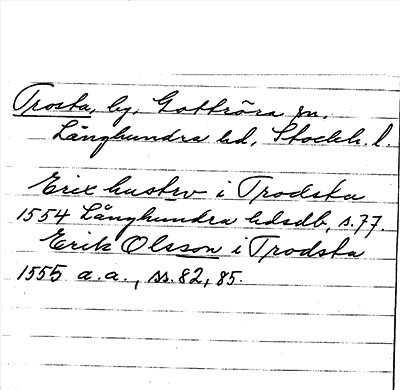 Trosta, by, Gottröra sn,
Långhundra hd, Stockh. l.
Erix hustrv i Trodsta
1554 Långhundra hdsdb, s. 77.
Erik Olsson i Trodsta
1555 a.a., ss. 82, 85.